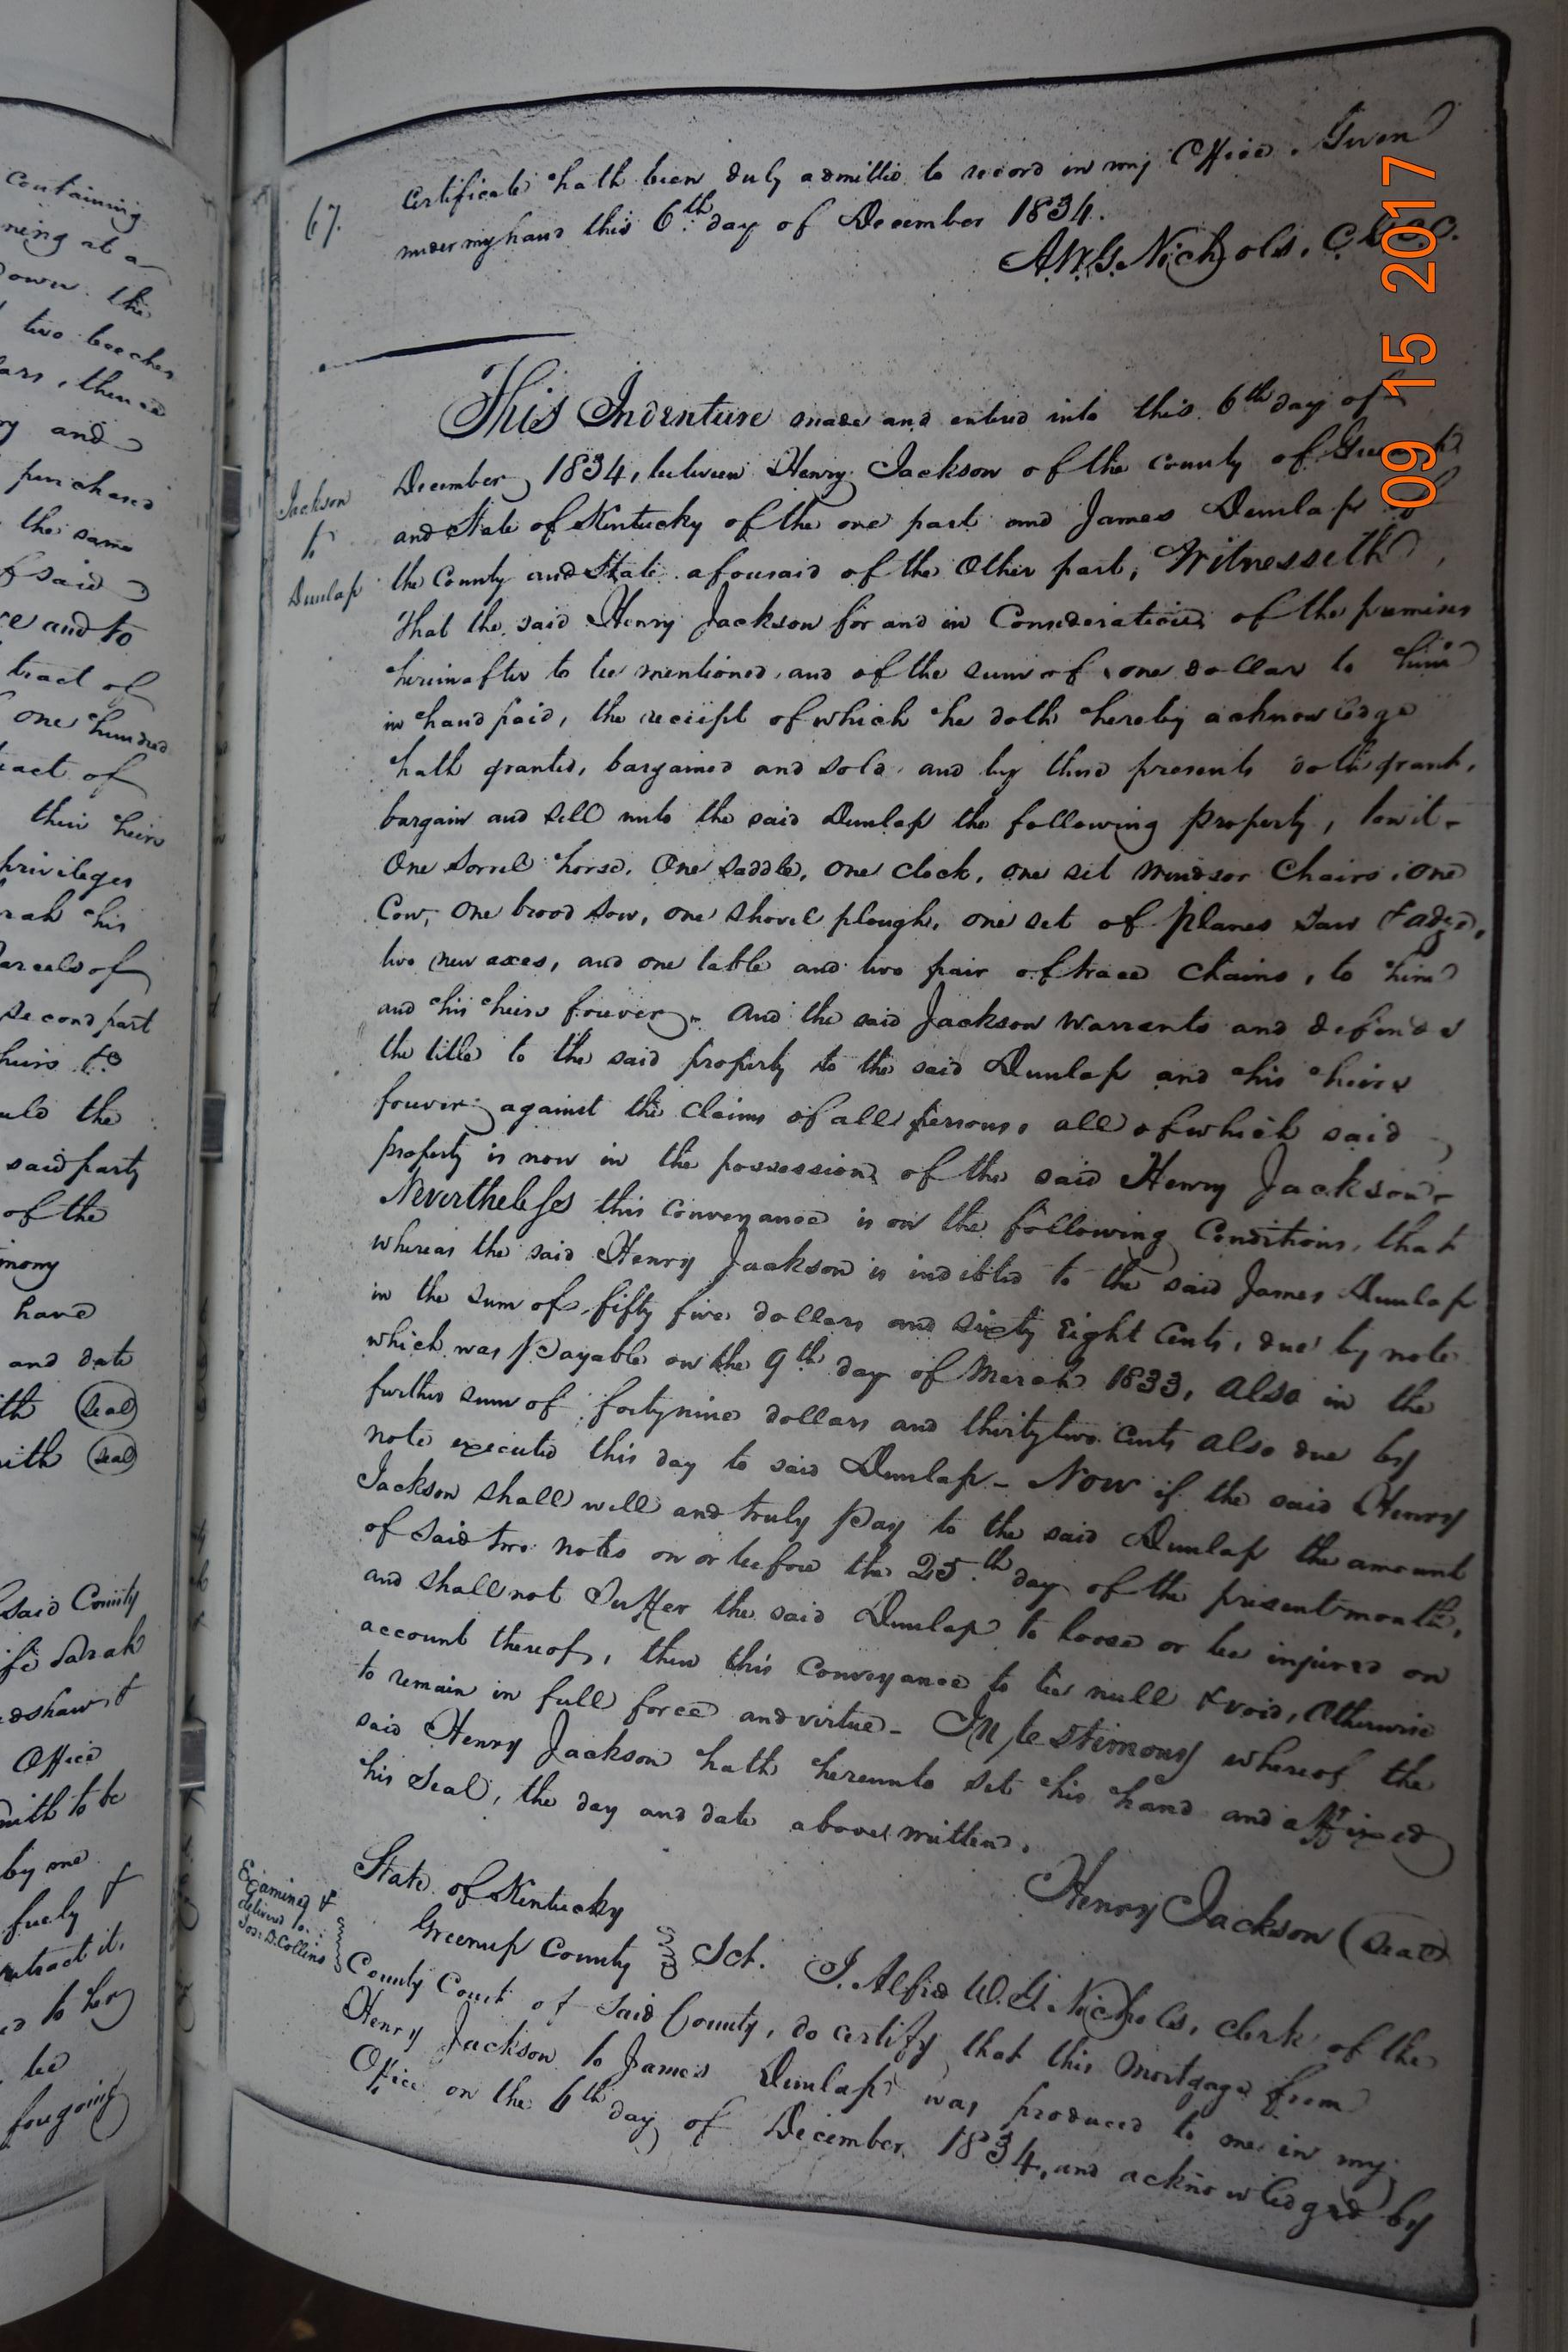 containing
ning at a
down. the
two beeches
ars, thence
ry and
purchased
the same
said
ce and to
tract of
one hundred
tract of
their heirs
privileges
rah his
arcels of
second part
heirs to
uld the
said party
of the
mony
have
and date
ith (Seal)
ith (Seal)
said County
fe Sarah
dshaw &
Office
mith to be
by me
fuely &
ntract it.
ed to her
be
foregoing
67.
Certificate hath been duly admitted to record in my Office. Given
under my hand this 6th day of December 1834.
A.W.G. Nichols, C.
09 15 2017
Jackson
to
Dunlap
This Indenture made and entered into this 6th day of
December 1834, between Henry Jackson of the county of
and State of Kentucky of the one part and James Dunlap of
the County and State aforesaid of the Other part, Witnesseth,
That the said Henry Jackson for and in Consideration of the premises
hereinafter to be mentioned, and of the sum of one dollar to him
in hand paid, the receipt of which he doth hereby acknowledge
hath granted, bargained and sold, and by these presents doth grant,
bargain and sell unto the said Dunlap the following property, towit-
One sorrel horse, One saddle, one clock, one set Windsor Chairs, one
Cow, one brood sow, one shovel plough, one set of planes saw & adze,
two new axes, and one table and two pair of trace chains, to him
and his heirs forever - And the said Jackson Warrants and defends
the title to the said property to the said Dunlap and his heirs
forever against the claims of all persons, all of which said
property is now in the possession of the said Henry Jackson -
Nevertheless this conveyance is on the following Conditions, that
whereas the said Henry Jackson is indebted to the said James Dunlap
in the sum of fifty five dollars and sixty Eight Cents, due by note
which was Payable on the 9th day of March 1833, also in the
further sum of forty nine dollars and thirty two Cents also due by
note executed this day to said Dunlap - Now if the said Henry
Jackson shall well and truly Pay to the said Dunlap the amount
of said two notes on or before the 25th day of the present month,
and shall not Suffer the said Dunlap to loose or be injured on
account thereof, then this Conveyance to be null & void, Otherwise
to remain in full force and virtue - In testimony whereof the
said Henry Jackson hath hereunto set his hand and affixed
his Seal, the day and date above written.
Henry Jackson (Seal)
Examined &
delivered to
Jos: D. Collins
State of Kentucky
Greenup County Sct. I, Alfred W. G. Nichols, clerk of the
County Court of Said County, do certify that this Mortgage from
Henry Jackson to James Dunlap was produced to me in my
Office on the 6th day of December 1834, and acknowledged by